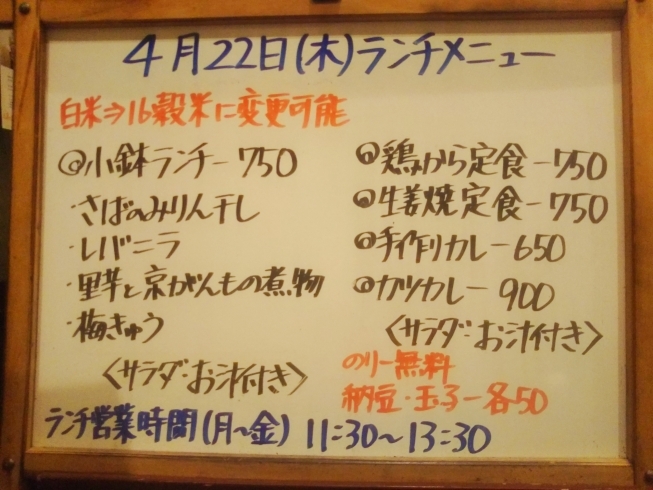 4月22日(木)ランチメニュー
白米⇒16穀米に変更可能
◎小鉢ランチー750
・さばのみりん干し
・レバニラ
・里芋と京がんもの煮物
・梅きゅう
〈サラダ・お汁付き〉
◎鶏から定食ー750
◎生姜焼定食ー750
◎手作りカレー650
◎カツカレー900
〈サラダ・お汁付き〉
のりー無料
納豆・玉子ー各50
ランチ営業時間(月〜金) 11:30〜13:30